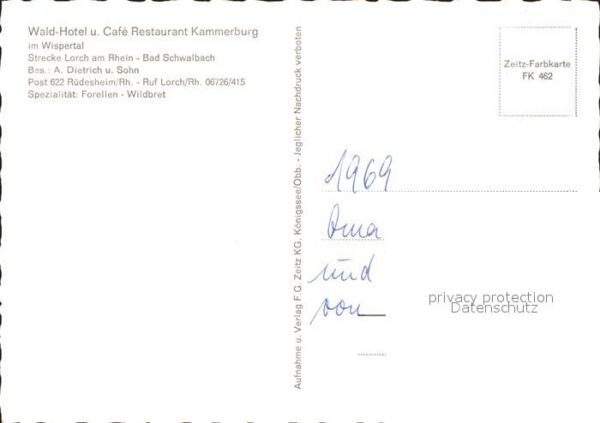 Wald-Hotel u. Café Restaurant Kammerburg
im Wispertal
Strecke Lorch am Rhein - Bad Schwalbach
Bes.: A. Dietrich u. Sohn
Post 622 Rüdesheim/Rh. - Ruf Lorch/Rh. 06726/415
Spezialität: Forellen - Wildbret
Aufnahme u. Verlag F. G. Zeitz KG, Königssee/Obb. - Jeglicher Nachdruck verboten
Zeitz-Farbkarte
FK 462
1969
Oma
und
von
privacy protection
Datenschutz